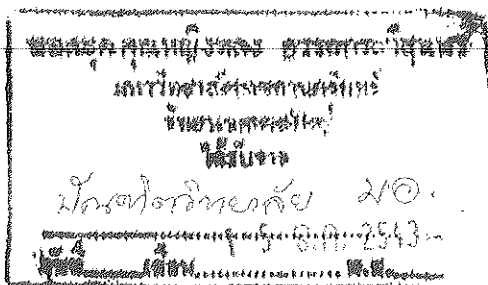 หอสมุด คุณหญิงหลง อรรถกระวีสุนทร
มหาวิทยาลัยสงขลานครินทร์
วิทยาเขตหาดใหญ่
ได้รับจาก
บัณฑิตวิทยาลัย มอ.
5 ต.ค. 2543
วันที่ เดือน พ.ศ.